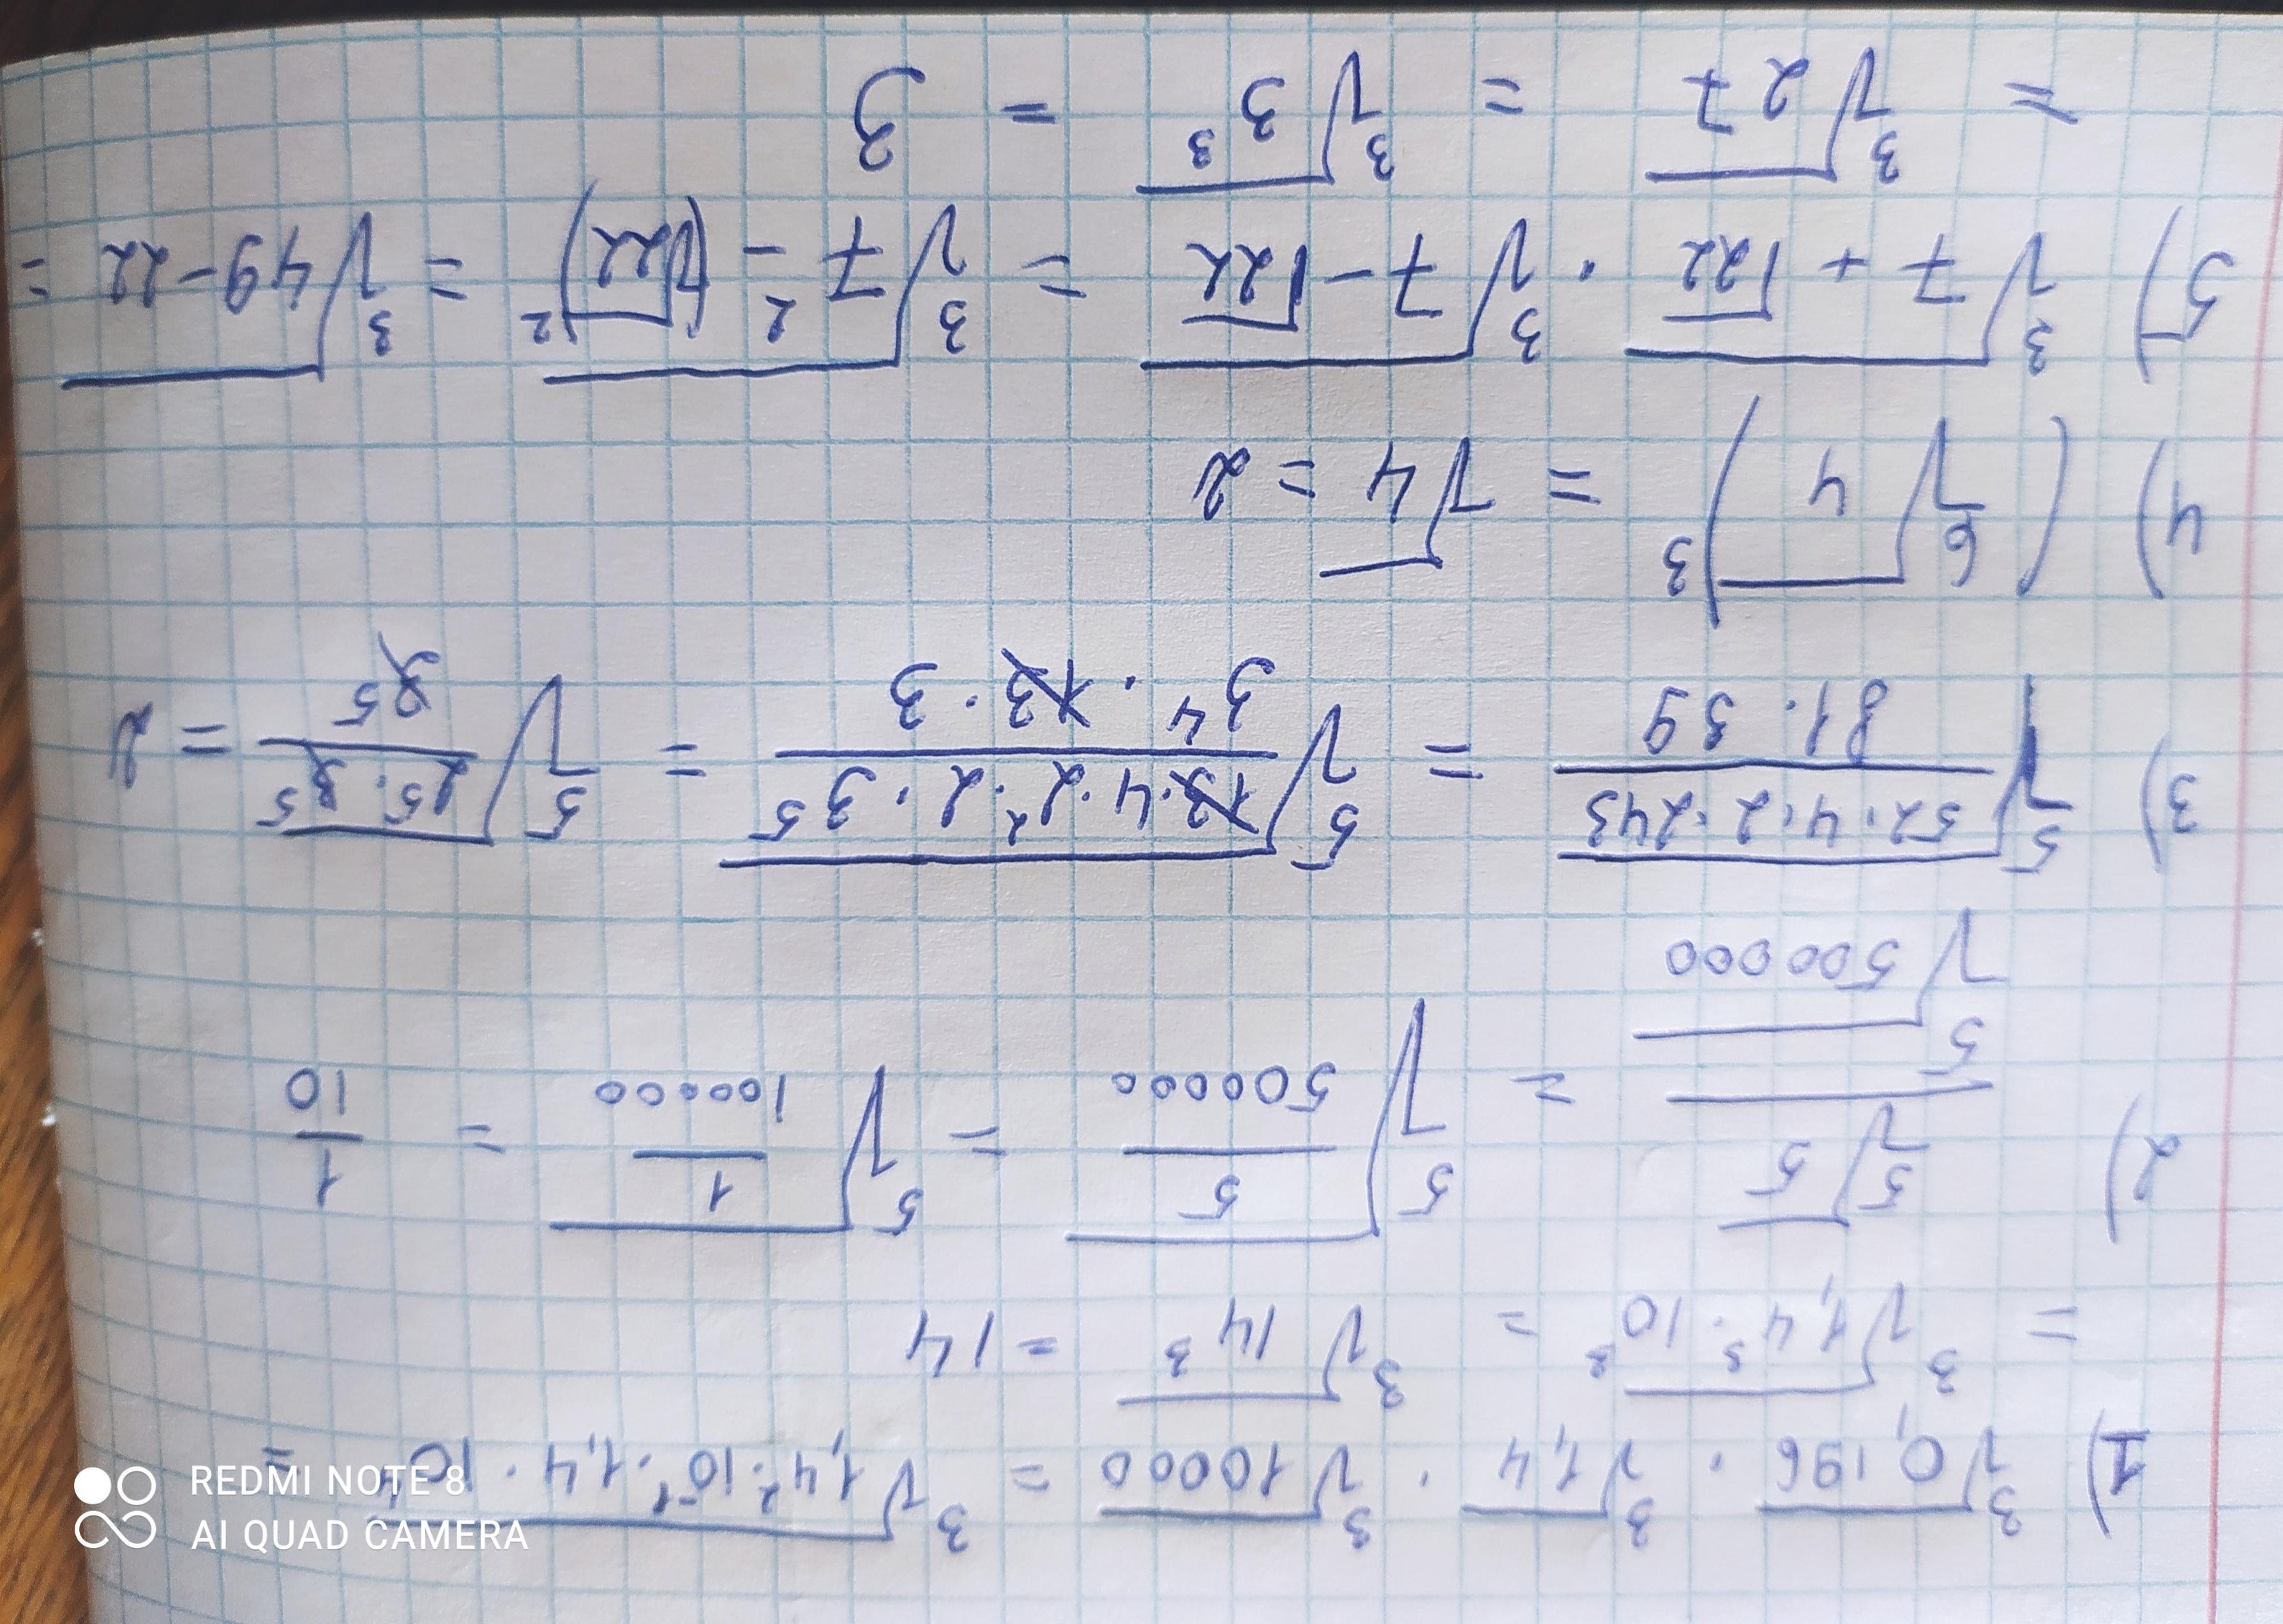 1) ∛0,196 · ∛1,4 · ∛10000 = ∛(1,4² · 10⁻¹ · 1,4 · 10⁴) =
= ∛(1,4³ · 10³) = ∛(14³) = 14
2) ⁵√5 / ⁵√500000 = ⁵√(5/500000) = ⁵√(1/100000) = 1/10
3) ⁵√((52 · 4 · 2 · 243)/(81 · 39)) = ⁵√((13 · 4 · 2² · 2 · 3⁵)/(3⁴ · 13 · 3)) = ⁵√((2⁵ · 3⁵)/3⁵) = 2
4) (⁶√4)³ = √4 = 2
5) ∛(7 + √22) · ∛(7 - √22) = ∛(7² - (√22)²) = ∛(49 - 22) =
= ∛27 = ∛(3³) = 3
REDMI NOTE 8
AI QUAD CAMERA